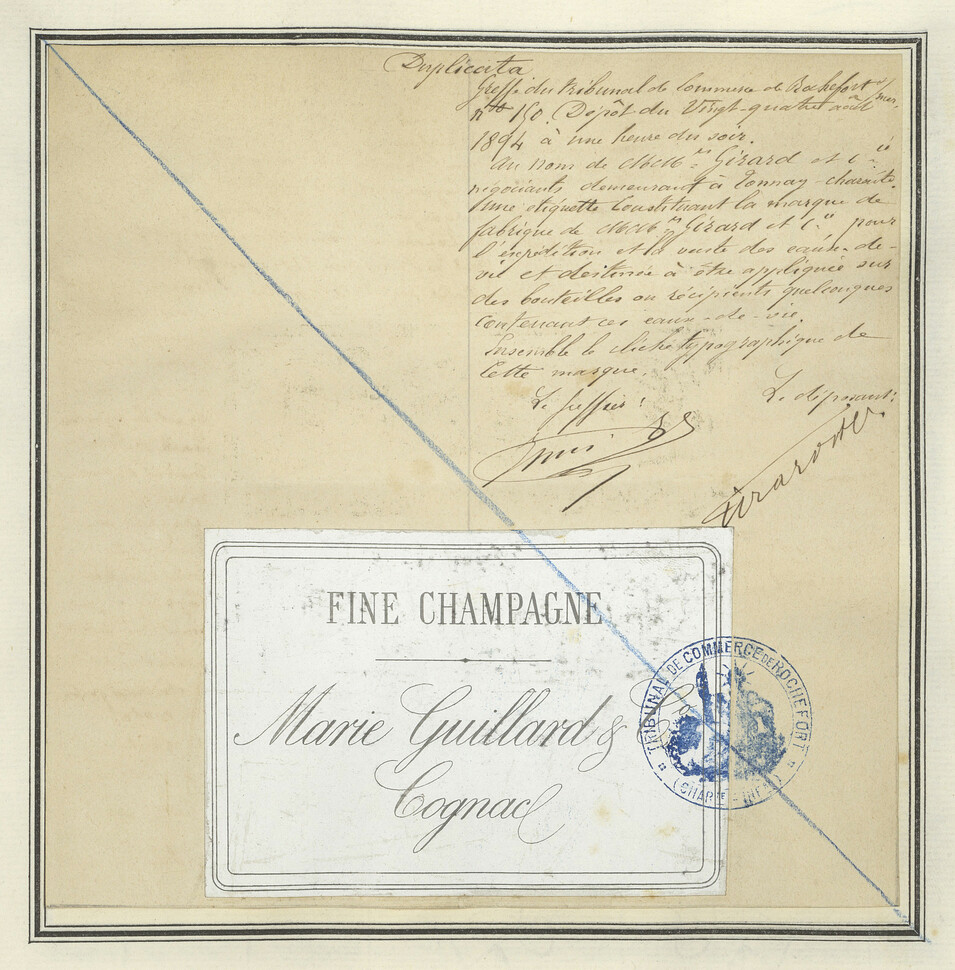 Duplicata
Greffe du Tribunal de Commerce de Rochefort s/mer.
n° 150. Dépôt du Vingt-quatre août
1894 à une heure du soir.
Au nom de MM.rs Girard et C.ie
négociants demeurant à Tonnay-charente.
Une étiquette Constituant la marque de
fabrique de MM.rs Girard et C.ie pour
l'expédition et la vente des eaux-de-
vie et destinée à être appliquée sur
des bouteilles ou récipients quelconques
Contenant ces eaux-de-vie.
Ensemble le cliché typographique de
Cette marque.
Le Greffier: Le déposant:
Girard et Cie
FINE CHAMPAGNE
Marie Guillard & Co
Cognac
TRIBUNAL DE COMMERCE DE ROCHEFORT
(CHAR.TE - INF.)